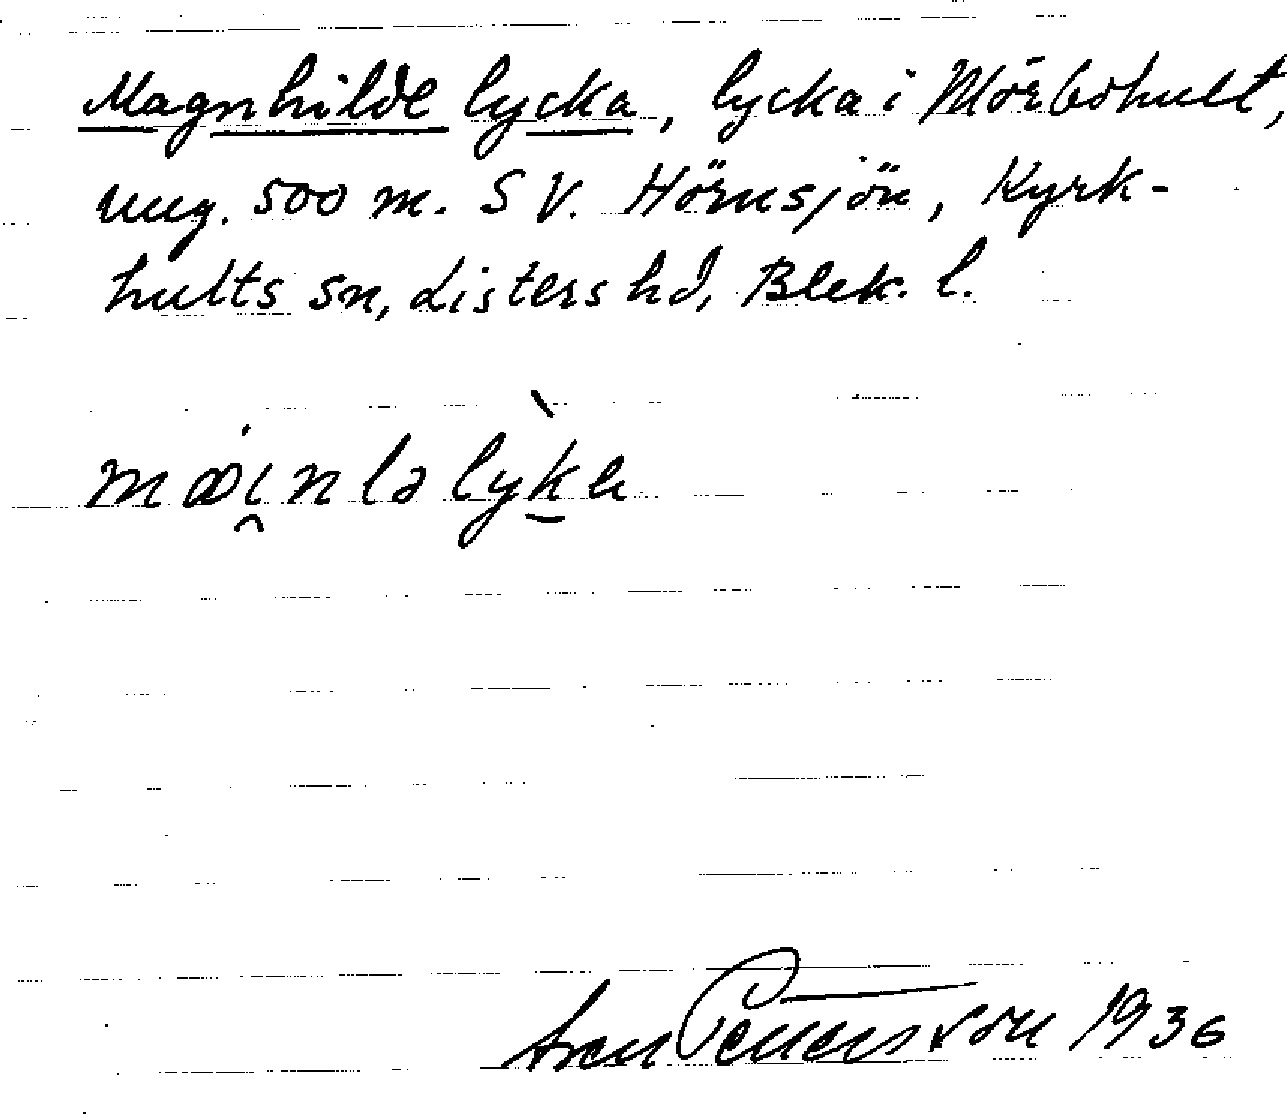 Magnhilde lycka, lycka i Mörbohult,
ung. 500 m. S V. Hörnsjön, Kyrk-
hults sn, Listers hd, Blek. l.
mæi̯nlə lỳk̠a
Sven Pettersson 1936